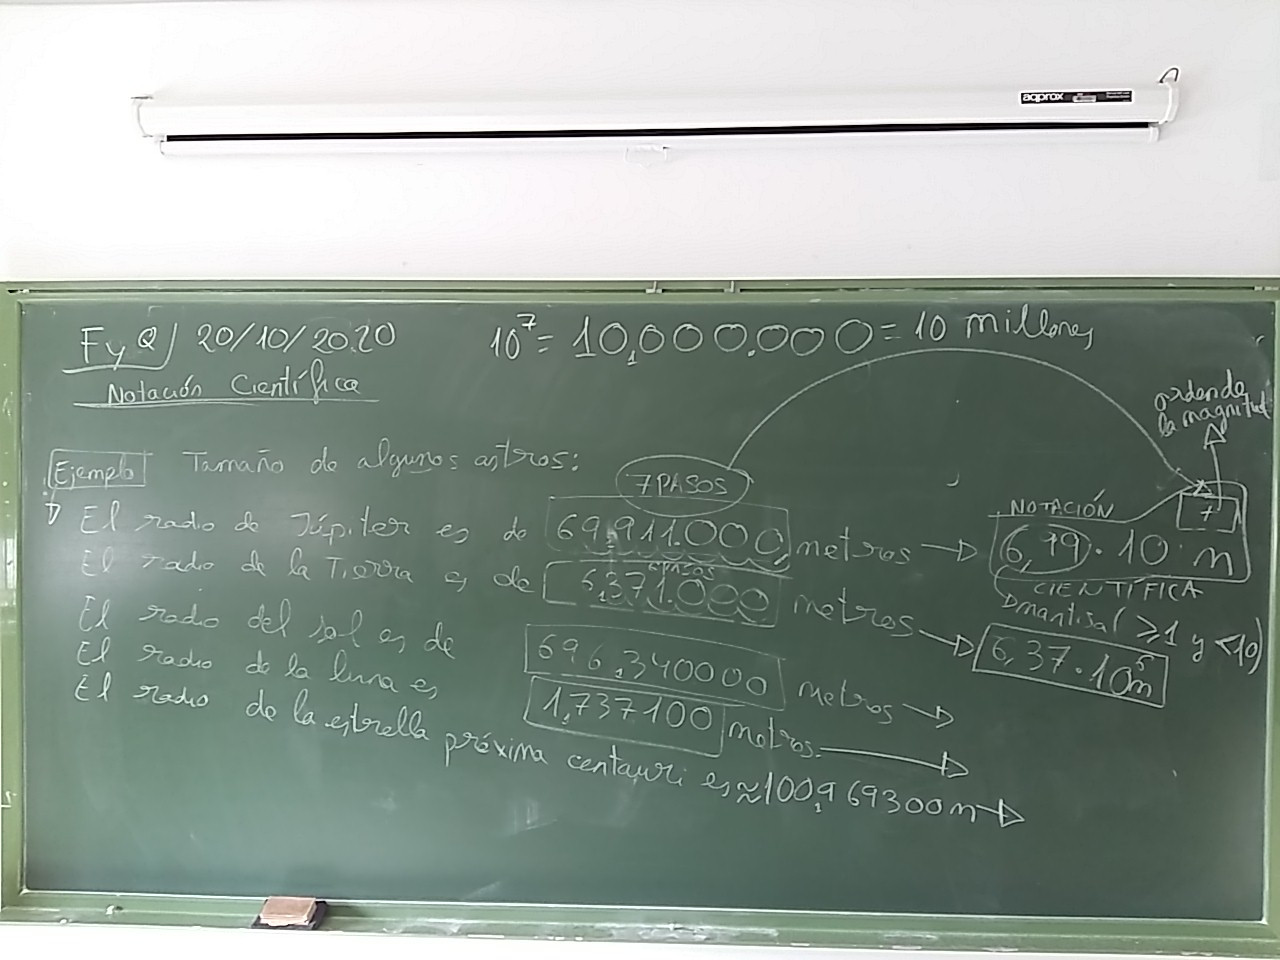 aqprox
FyQ 20/10/2020
10⁷ = 10,000.000 = 10 millones
Notación Científica
orden de
la magnitud
Ejemplo Tamaño de algunos astros:
7 PASOS
NOTACIÓN
El radio de Júpiter es de 69,911.000 metros → 6,99·10⁷ m
6 PASOS
CIENTÍFICA
mantisa (≥1 y <10)
El radio de la Tierra es de 6,371.000 metros → 6,37·10⁶ m
El radio del sol es de 696,340000 metros →
El radio de la luna es 1,737100 metros →
El radio de la estrella próxima centauri es ≈100,969300 m →